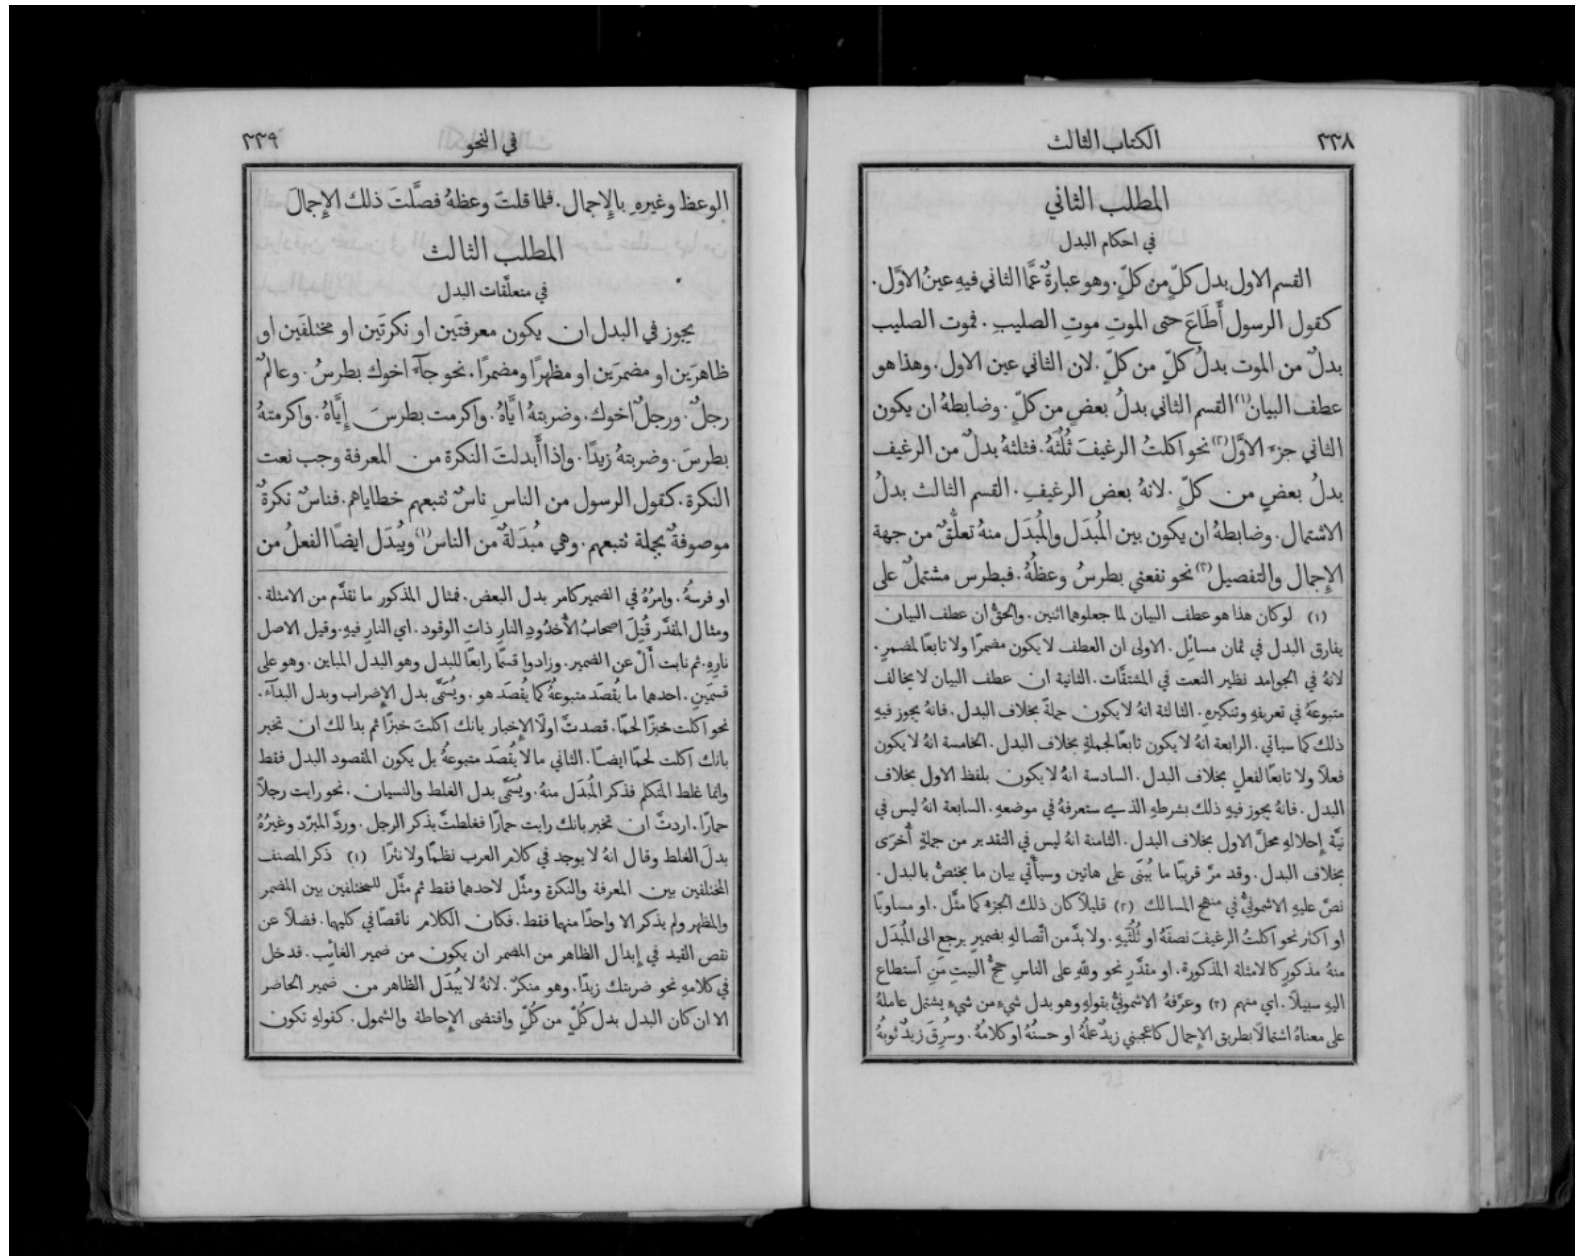 ٢٣٨
الكتاب الثالث
المطلب الثاني
في احكام البدل
القسم الاول بدل كلٍّ من كلٍّ. وهو عبارةٌ عمَّا الثاني فيهِ عينُ الاوَّل.
كقول الرسول أَطَاعَ حتى الموتِ موتِ الصليبِ. فموت الصليب
بدلٌ من الموت بدلُ كلٍّ من كلٍّ. لان الثاني عين الاول. وهذا هو
عطف البيان(١) القسم الثاني بدلُ بعضٍ من كلٍّ. وضابطهُ ان يكون
الثاني جزءَ الاوَّل(٢) نحو اكلتُ الرغيفَ ثُلُثَهُ. فثلثهُ بدلٌ من الرغيف
بدلُ بعضٍ من كلٍّ. لانهُ بعض الرغيفِ. القسم الثالث بدلُ
الاشتمال. وضابطهُ ان يكون بين المُبدَل والمُبدَل منهُ تعلُّقٌ من جهة
الإِجمال والتفصيل(٣) نحو نفعني بطرسُ وعظُهُ. فبطرس مشتملٌ على
(١) لو كان هذا هو عطف البيان لما جعلوهما اثنين. والحقُّ ان عطف البيان
يفارق البدل في ثمان مسائِل. الاولى ان العطف لا يكون مضمرًا ولا تابعًا لمضمرٍ.
لانهُ في الجوامد نظير النعت في المشتقَّات. الثانية ان عطف البيان لا يخالف
متبوعهُ في تعريفهِ وتنكيرهِ. الثالثة انهُ لا يكون جملةً بخلاف البدل. فانهُ يجوز فيهِ
ذلك كما سياتي. الرابعة انهُ لا يكون تابعًا لجملةٍ بخلاف البدل. الخامسة انهُ لا يكون
فعلاً ولا تابعًا لفعلٍ بخلاف البدل. السادسة انهُ لا يكون بلفظ الاول بخلاف
البدل. فانهُ يجوز فيهِ ذلك بشرطهِ الذي ستعرفهُ في موضعهِ. السابعة انهُ ليس في
نيَّة إِحلالهِ محلَّ الاول بخلاف البدل. الثامنة انهُ ليس في التقدير من جملةٍ أُخرَى
بخلاف البدل. وقد مرَّ قريبًا ما يُبنَى على هاتين وسيأتي بيان ما يختصُّ بالبدل.
نصَّ عليهِ الاشمونيُّ في منهج المسالك (٢) قليلاً كان ذلك الجزءُ كما مثَّل. او مساويًا
او اكثر نحو اكلتُ الرغيفَ نصفَهُ او ثُلُثَيهِ. ولا بدَّ من اتّصالهِ بضميرٍ يرجع الى المُبدَل
منهُ مذكورٍ كالامثلة المذكورة. او مقدَّرٍ نحو وللهِ على الناسِ حجُّ البيتِ مَنِ استطاع
اليهِ سبيلاً. اي منهم (٣) وعرَّفهُ الاشمونيُّ بقولهِ وهو بدل شيءٍ من شيءٍ يشتمل عاملهُ
على معناهُ اشتمالاً بطريق الإِجمال كاعجبني زيدٌ علمُهُ او حسنُهُ او كلامُهُ. وسُرِقَ زيدٌ ثوبُهُ
في النحو
٢٣٩
الوعظ وغيرهِ بالإِجمال. فلما قلتَ وعظهُ فصَّلتَ ذلك الإِجمالَ
المطلب الثالث
في متعلَّقات البدل
يجوز في البدل ان يكون معرفتَين او نكرتَين او مختلفَين او
ظاهرَين او مضمرَين او مظهرًا ومضمرًا. نحو جآءَ اخوك بطرسُ. وعالمٌ
رجلٌ. ورجلٌ اخوك. وضربتهُ ايَّاهُ. واكرمت بطرسَ إِيَّاهُ. واكرمتهُ
بطرسَ. وضربتهُ زيدًا. واذا أَبدلتَ النكرة من المعرفة وجب نعت
النكرة. كقول الرسول من الناسِ ناسٌ تتبعهم خطاياهم. فناسٌ نكرةٌ
موصوفةٌ بجملة تتبعهم. وهي مُبدَلةٌ من الناس(١) ويُبدَل ايضًا الفعلُ من
او فرسُهُ. وامرُهُ في الضمير كامر بدل البعض. فمثال المذكور ما تقدَّم من الامثلة.
ومثال المقدَّر قُتِلَ اصحابُ الأُخدُودِ النارِ ذاتِ الوقود. اي النارِ فيهِ. وقيل الاصل
نارِهِ. ثم نابت أَلْ عن الضمير. وزادوا قسمًا رابعًا للبدل وهو البدل المباين. وهو على
قسمَين. احدهما ما يُقصَد متبوعهُ كما يُقصَد هو. ويُسَمَّى بدل الإِضراب وبدل البدآءِ.
نحو اكلت خبزًا لحمًا. قصدتَّ اولاً الإِخبار بانك اكلتَ خبزًا ثم بدا لك ان تخبر
بانك اكلت لحمًا ايضًا. الثاني ما لا يُقصَد متبوعهُ بل يكون المقصود البدل فقط
وانما غلط المتكلم فذكر المُبدَل منهُ. ويُسَمَّى بدل الغلط والنسيان. نحو رايت رجلاً
حمارًا. اردتَّ ان تخبر بانك رايت حمارًا فغلطتَّ بذكر الرجل. وردَّ المبرّد وغيرُهُ
بدلَ الغلط وقال انهُ لا يوجد في كلام العرب نظمًا ولا نثرًا (١) ذكر المصنف
المختلفين بين المعرفة والنكرة ومثَّل لاحدهما فقط ثم مثَّل للمختلفين بين المضمر
والمظهر ولم يذكر الا واحدًا منهما فقط. فكان الكلام ناقصًا في كليهما. فضلاً عن
نقص القيد في إِبدال الظاهر من المضمر ان يكون من ضمير الغائِب. فدخل
في كلامهِ نحو ضربتك زيدًا. وهو منكرٌ. لانهُ لا يُبدَل الظاهر من ضمير الحاضر
الا ان كان البدل بدل كُلٍّ من كُلٍّ واقتضى الإِحاطة والشمول. كقولهِ تكون